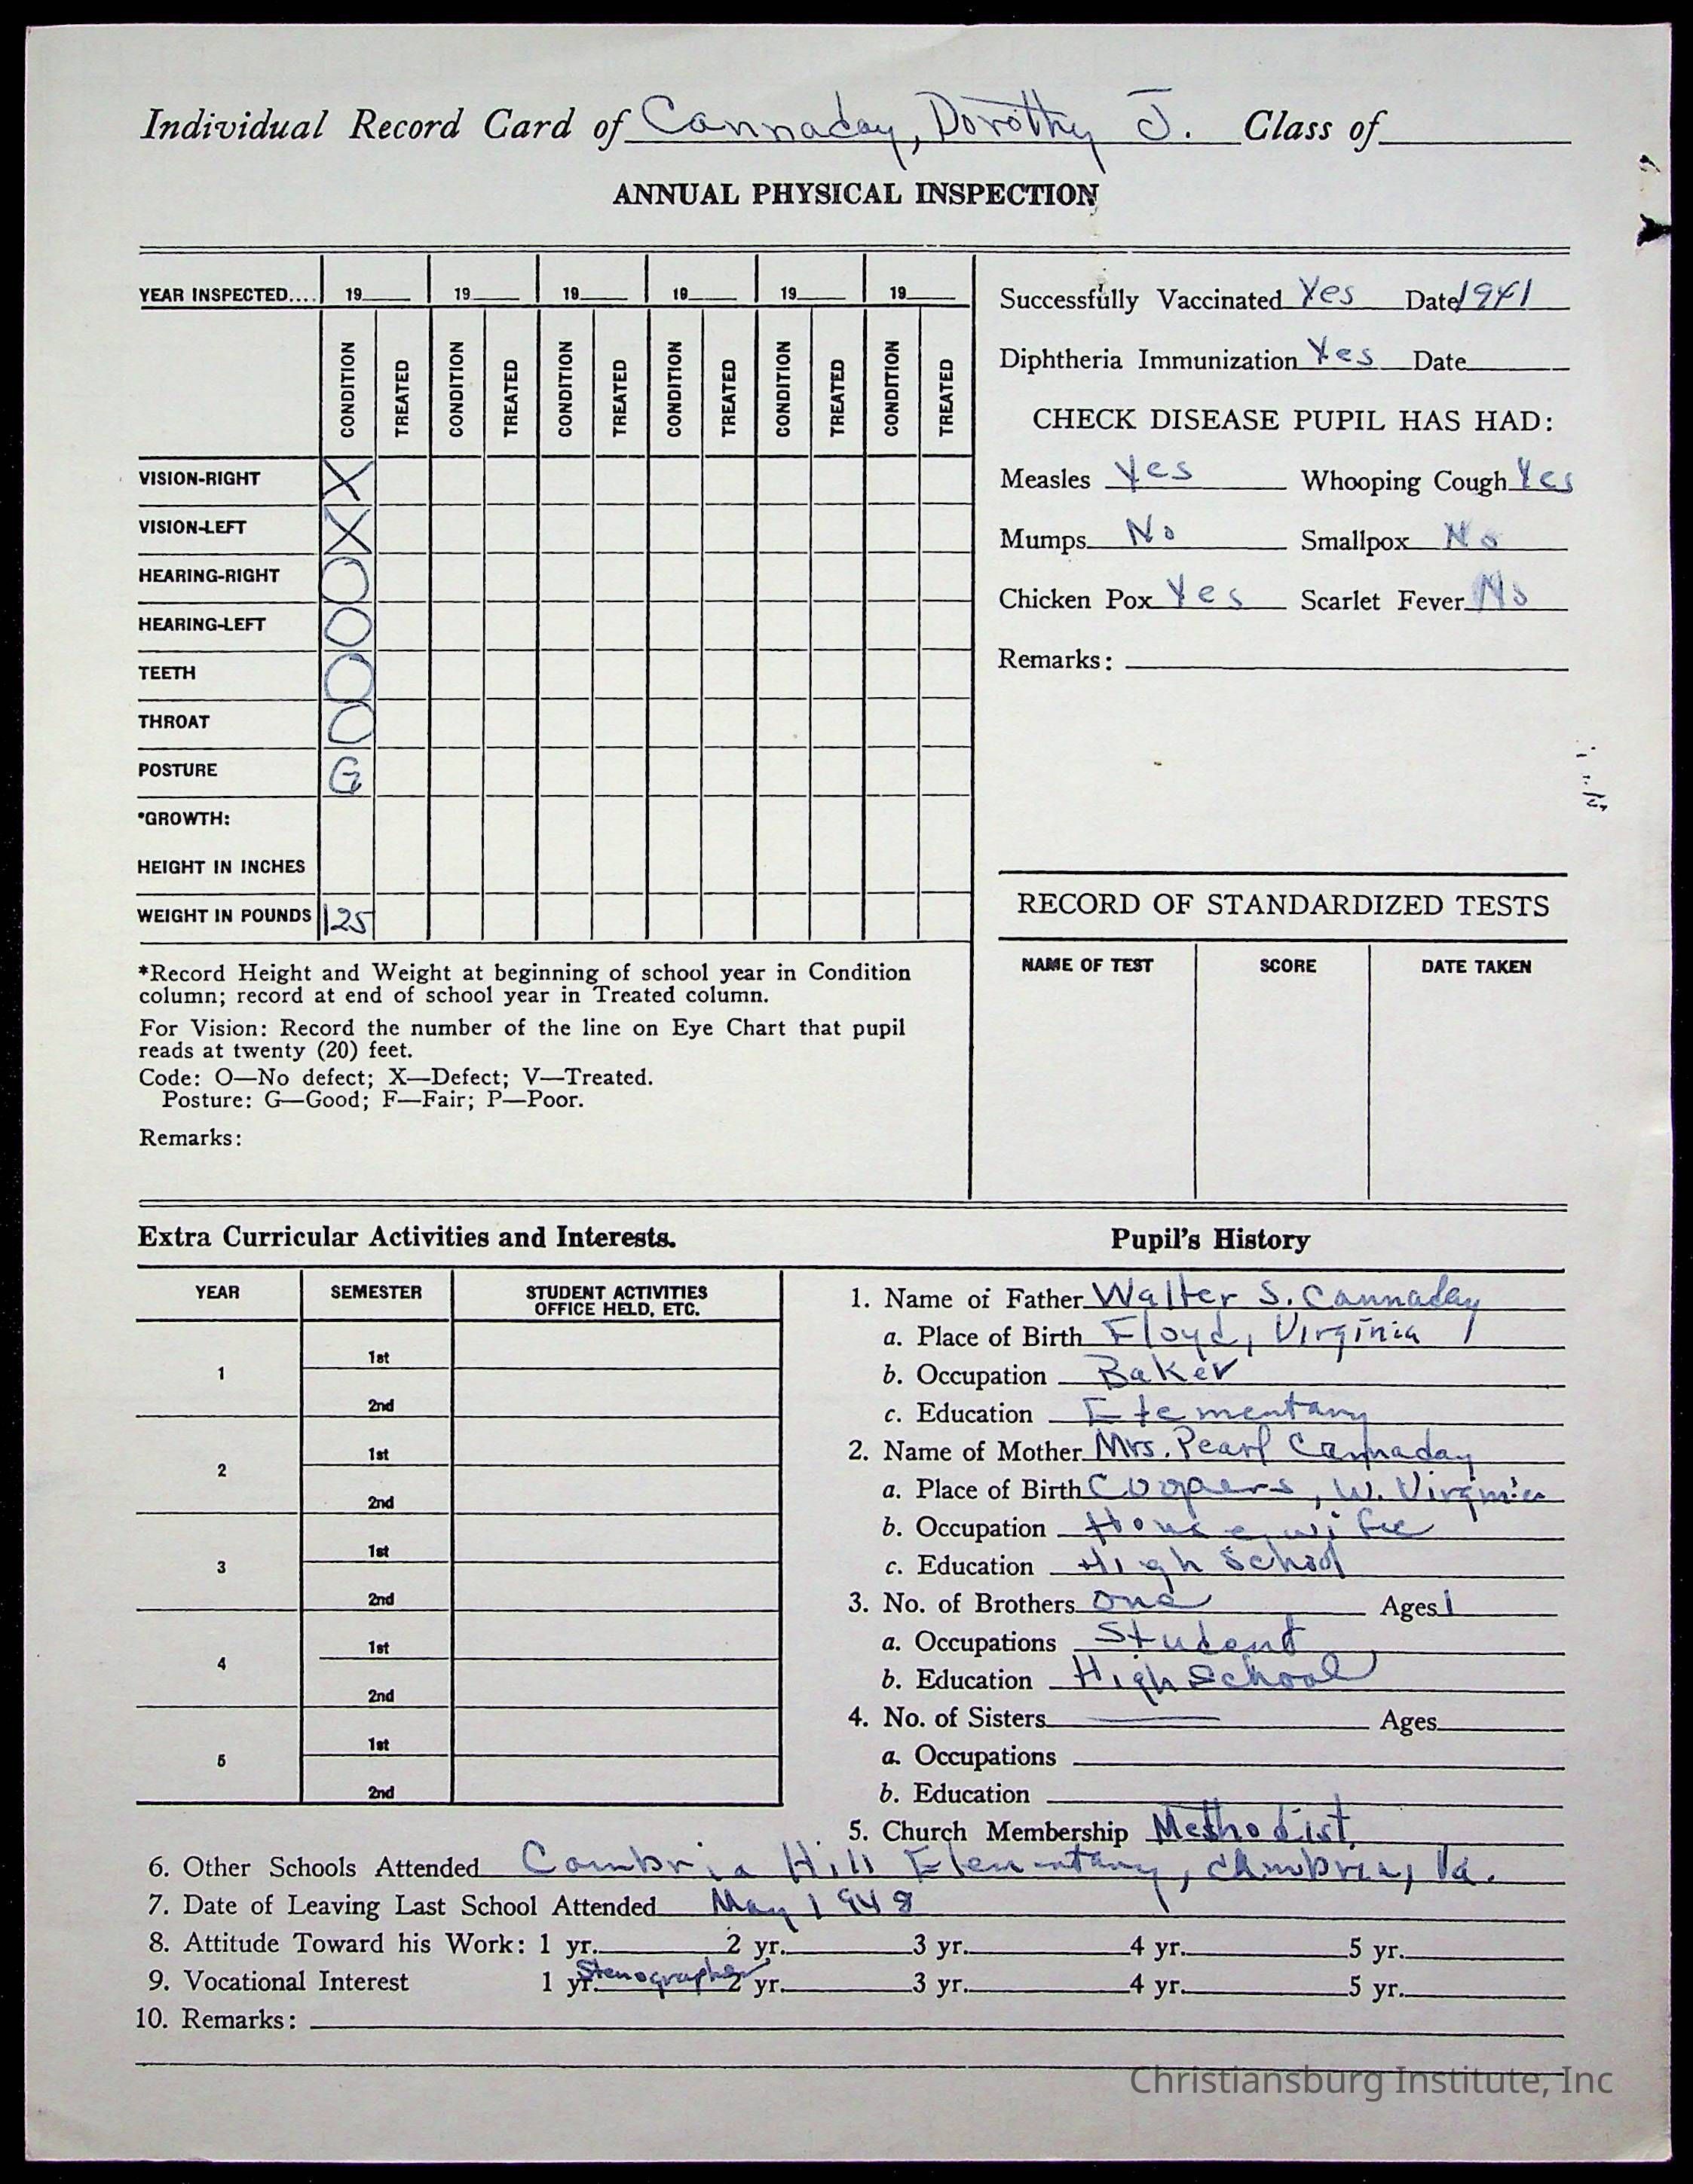 Individual Record Card of Cannaday, Dorothy J. Class of
ANNUAL PHYSICAL INSPECTION
YEAR INSPECTED.... 19 19 19 19 19 19
CONDITION TREATED CONDITION TREATED CONDITION TREATED CONDITION TREATED CONDITION TREATED CONDITION TREATED
VISION-RIGHT X
VISION-LEFT X
HEARING-RIGHT O
HEARING-LEFT O
TEETH O
THROAT O
POSTURE G
*GROWTH:
HEIGHT IN INCHES
WEIGHT IN POUNDS 125
*Record Height and Weight at beginning of school year in Condition
column; record at end of school year in Treated column.
For Vision: Record the number of the line on Eye Chart that pupil
reads at twenty (20) feet.
Code: O—No defect; X—Defect; V—Treated.
Posture: G—Good; F—Fair; P—Poor.
Remarks:
Successfully Vaccinated Yes Date 1941
Diphtheria Immunization Yes Date
CHECK DISEASE PUPIL HAS HAD:
Measles Yes Whooping Cough Yes
Mumps No Smallpox No
Chicken Pox Yes Scarlet Fever No
Remarks:
RECORD OF STANDARDIZED TESTS
NAME OF TEST SCORE DATE TAKEN
Extra Curricular Activities and Interests.
YEAR SEMESTER STUDENT ACTIVITIES
OFFICE HELD, ETC.
1 1st
2nd
2 1st
2nd
3 1st
2nd
4 1st
2nd
5 1st
2nd
Pupil's History
1. Name of Father Walter S. Cannaday
a. Place of Birth Floyd, Virginia
b. Occupation Baker
c. Education Elementary
2. Name of Mother Mrs. Pearl Cannaday
a. Place of Birth Coopers, W. Virginia
b. Occupation Housewife
c. Education High School
3. No. of Brothers One Ages 1
a. Occupations Student
b. Education High School
4. No. of Sisters Ages
a. Occupations
b. Education
5. Church Membership Methodist
6. Other Schools Attended Cambria Hill Elementary, Cambria, Va.
7. Date of Leaving Last School Attended May 1948
8. Attitude Toward his Work: 1 yr. 2 yr. 3 yr. 4 yr. 5 yr.
9. Vocational Interest 1 yr. Stenographer 2 yr. 3 yr. 4 yr. 5 yr.
10. Remarks:
Christiansburg Institute, Inc